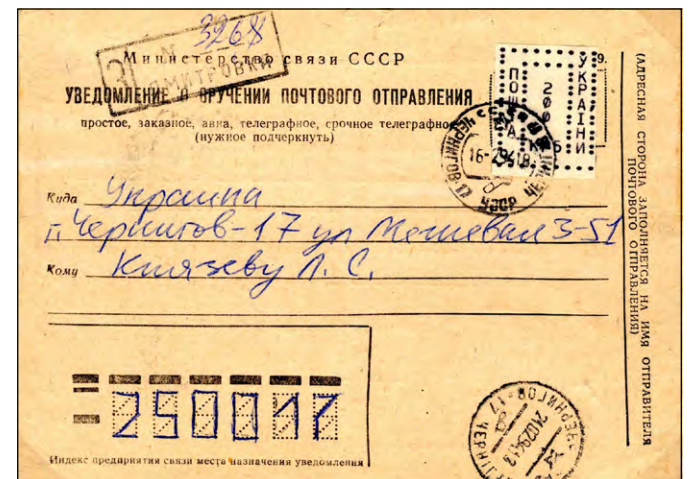 3268
З N
ДМИТРОВКИ
Министерство связи СССР
УВЕДОМЛЕНИЕ О ВРУЧЕНИИ ПОЧТОВОГО ОТПРАВЛЕНИЯ
простое, заказное, авиа, телеграфное, срочное телеграфное
(нужное подчеркнуть)
УКРАЇНИ
200
ПОШТА
ЧЕРНИГОВ 17
Куда Украина
г. Чернигов-17 ул Межевая 3-51
Кому Князеву Л. С.
250017
Индекс предприятия связи места назначения уведомления
ЧЕРНИГОВ-17
(АДРЕСНАЯ СТОРОНА ЗАПОЛНЯЕТСЯ НА ИМЯ ОТПРАВИТЕЛЯ
ПОЧТОВОГО ОТПРАВЛЕНИЯ)